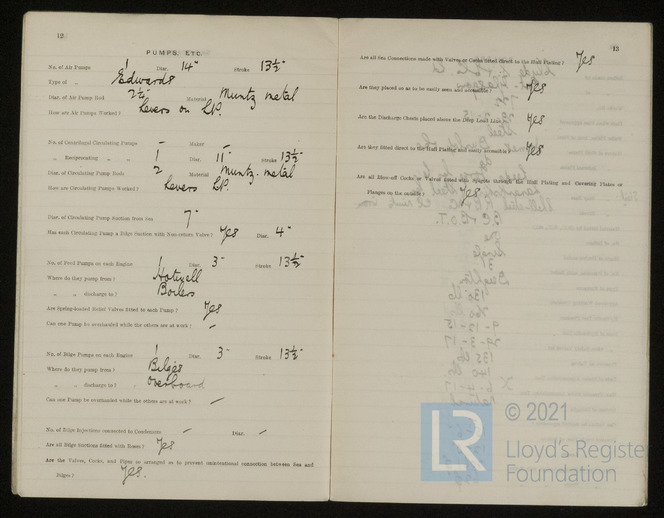 12
PUMPS, ETC.
No. of Air Pumps 1 Diar. 14" Stroke 13½"
Type of " Edwards
Diar. of Air Pump Rod Material Muntz metal
How are Air Pumps Worked? Levers on L.P.
No. of Centrifugal Circulating Pumps – Maker –
" Reciprocating " " 1 Diar. 11" Stroke 13½"
Diar. of Circulating Pump Rods 2 Material Muntz metal
How are Circulating Pumps Worked? Levers L.P.
Diar. of Circulating Pump Suction from Sea 7"
Has each Circulating Pump a Bilge Suction with Non-return Valve? Yes Diar. 4"
No. of Feed Pumps on each Engine 1 Diar. 3" Stroke 13½"
Where do they pump from? Hotwell
" " discharge to? Boilers
Are Spring-loaded Relief Valves fitted to each Pump? Yes
Can one Pump be overhauled while the others are at work? –
No. of Bilge Pumps on each Engine 1 Diar. 3" Stroke 13½"
Where do they pump from? Bilges
" " discharge to? Overboard
Can one Pump be overhauled while the others are at work? –
No. of Bilge Injections connected to Condensers – Diar. –
Are all Bilge Suctions fitted with Roses? Yes
Are the Valves, Cocks, and Pipes so arranged as to prevent unintentional connection between Sea and
Bilges? Yes.
13
Are all Sea Connections made with Valves or Cocks fitted direct to the Hull Plating? Yes
Are they placed so as to be easily seen and accessible? Yes
Are the Discharge Chests placed above the Deep Load Line? Yes
Are they fitted direct to the Hull Plating and easily accessible? Yes
Are all Blow-off Cocks or Valves fitted with Spigots through the Hull Plating and Covering Plates or
Flanges on the outside? Yes
LR
© 2021
Lloyd's Register
Foundation